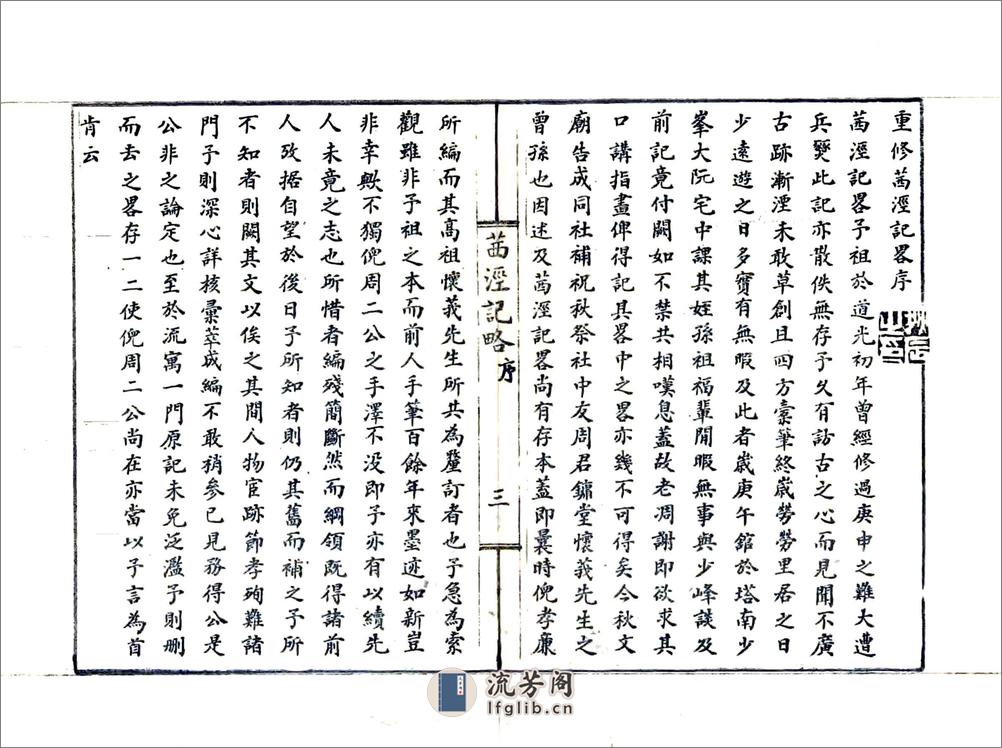 重修茜涇記畧序
茜涇記畧予祖於道光初年曾經修過庚申之難大遭
兵燹此記亦散佚無存予久有訪古之心而見聞不廣
古跡漸湮未敢草創且四方橐筆終歲勞勞里居之日
少遠遊之日多實有無暇及此者歲庚午館於塔南少
峯大阮宅中課其姪孫祖福輩閒暇無事與少峰談及
前記竟付闕如不禁共相嘆息蓋故老凋謝即欲求其
口講指畫俾得記其畧中之畧亦幾不可得矣今秋文
廟告成同社補祝秋祭社中友周君鏞堂懷義先生之
曾孫也因述及茜涇記畧尚有存本蓋即曩時倪孝廉
茜涇記略
序
三
所編而其高祖懷義先生所共為釐訂者也予急為索
觀雖非予祖之本而前人手筆百餘年來墨迹如新豈
非幸歟不獨倪周二公之手澤不没即予亦有以續先
人未竟之志也所惜者編殘簡斷然而綱領既得諸前
人攷据自望於後日予所知者則仍其舊而補之予所
不知者則闕其文以俟之其間人物宦跡節孝殉難諸
門予則深心詳核彙萃成編不敢稍參己見務得公是
公非之論定也至於流寓一門原記未免泛濫予則删
而去之畧存一二使倪周二公尚在亦當以予言為首
肯云
流芳阁
lfglib.cn